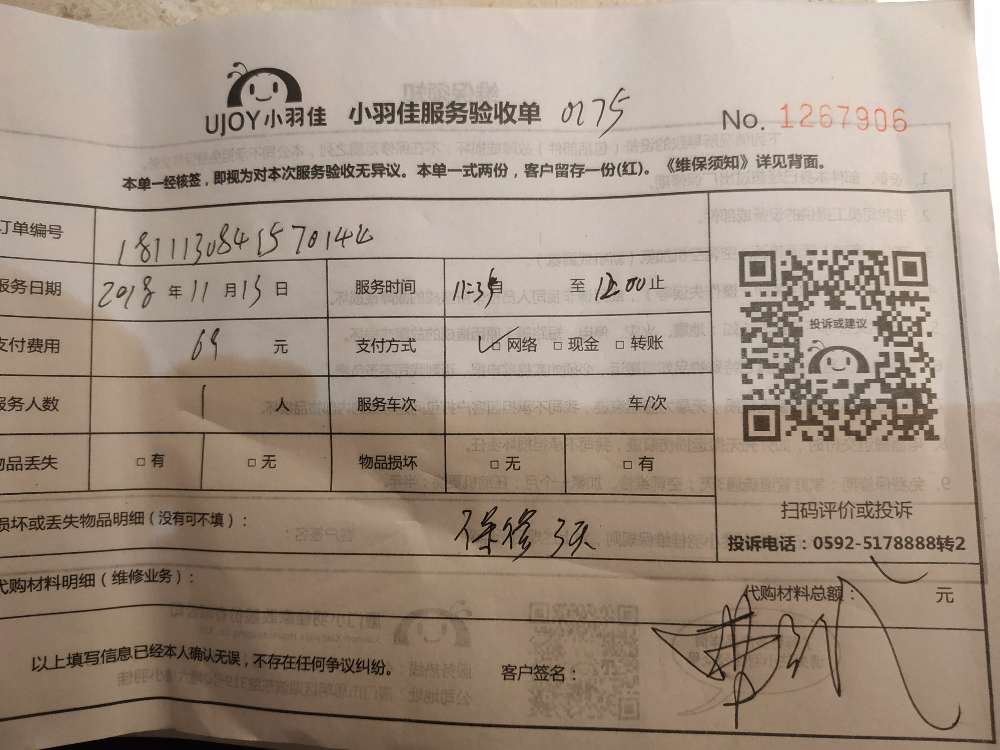 UJOY小羽佳 小羽佳服务验收单 0175 No. 1267906
本单一经核签，即视为对本次服务验收无异议。本单一式两份，客户留存一份(红)。《维保须知》详见背面。
订单编号
服务日期 2018 年 11 月 13 日 服务时间 11:35 自 至 12:00 止
投诉或建议
支付费用 69 元 支付方式 ✓□ 网络 □ 现金 □ 转账
服务人数 1 人 服务车次 车/次
物品丢失 □ 有 □ 无 物品损坏 □ 无 □ 有
扫码评价或投诉
损坏或丢失物品明细（没有可不填）： 保修3天
投诉电话：0592-5178888转2
代购材料明细（维修业务）： 代购材料总额： 元
以上填写信息已经本人确认无误，不存在任何争议纠纷。 客户签名：